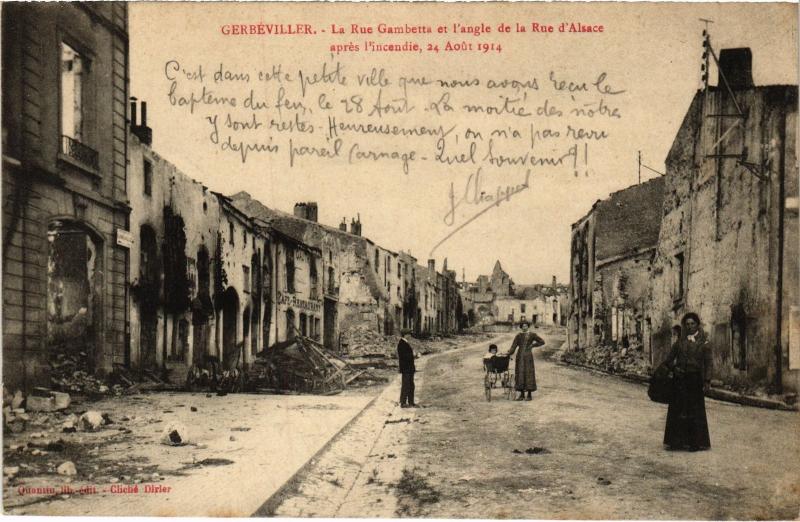 GERBÉVILLER. - La Rue Gambetta et l'angle de la Rue d'Alsace
après l'incendie, 24 Août 1914
C'est dans cette petite ville que nous avons reçu le
baptême du feu, le 28 Août. La moitié des nôtres
y sont restés - Heureusement, on n'a pas revu
depuis pareil carnage - Quel Souvenir !!
CAFÉ-RESTAURANT
Quantin, lib. édit. - Cliché Dirler